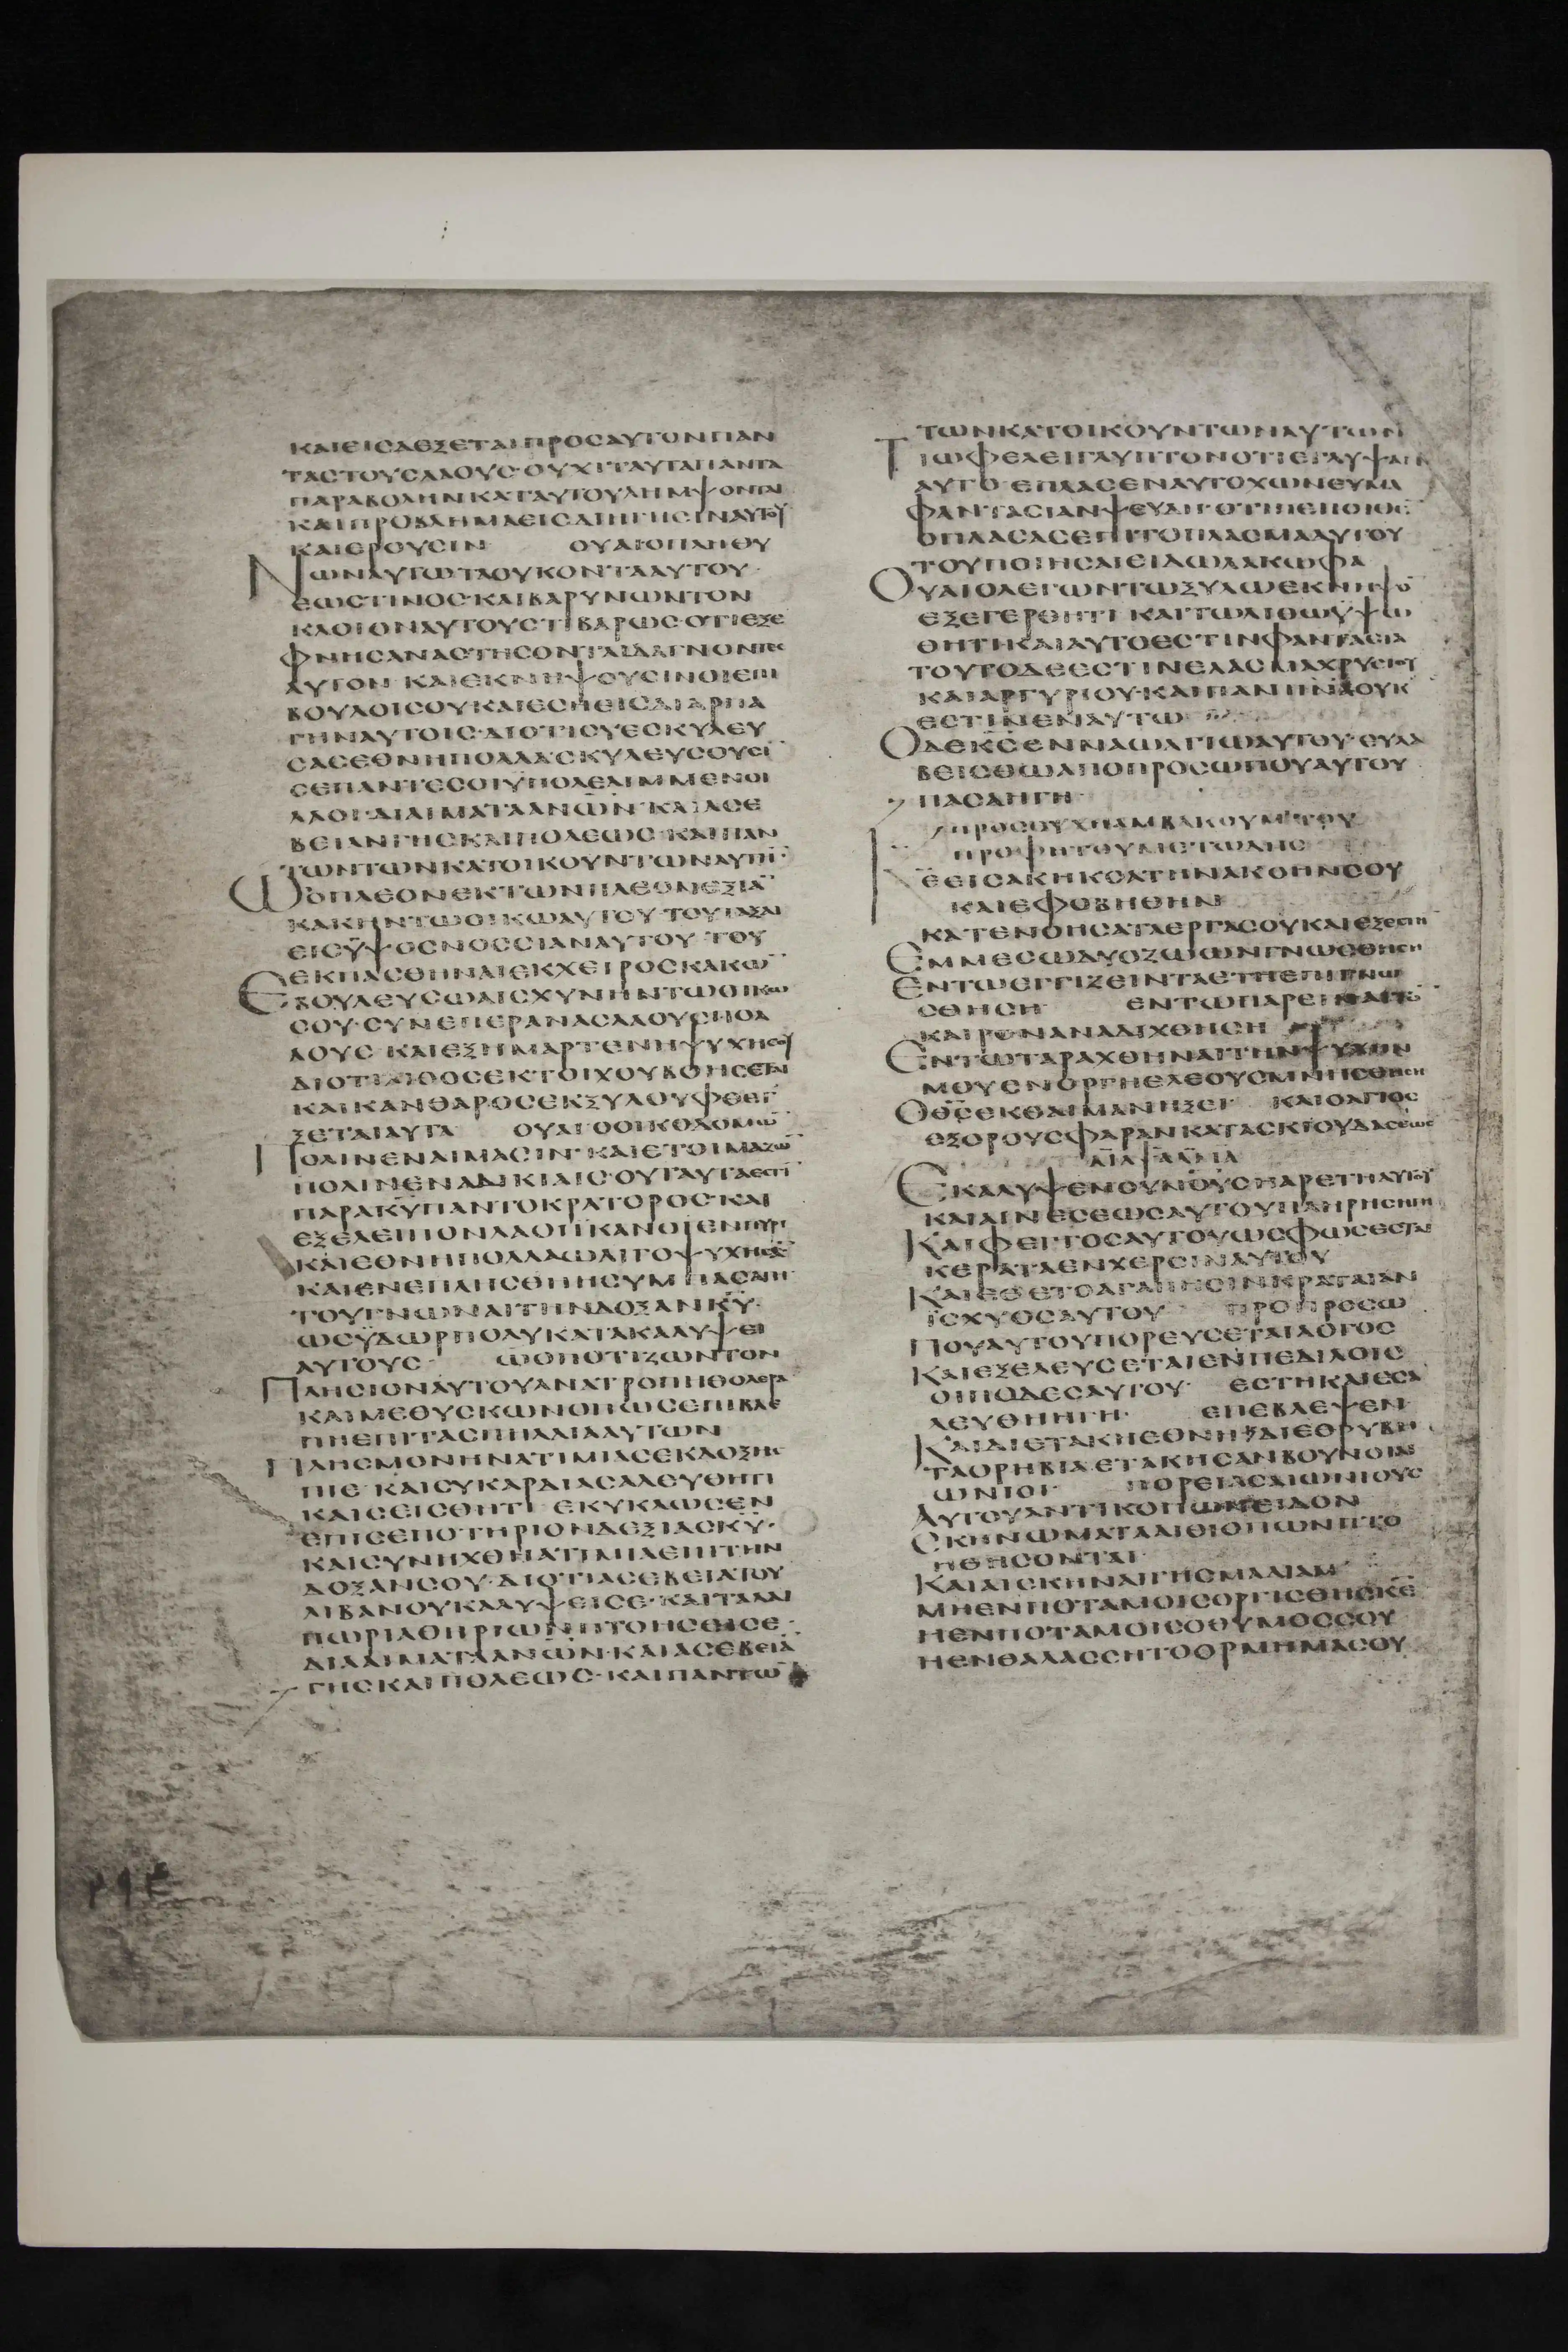 ΚΑΙΕΙΣΔΕΞΕΤΑΙΠΡΟΣΑΥΤΟΝΠΑΝ
ΤΑΣΤΟΥΣΛΑΟΥΣ·ΟΥΧΙΤΑΥΤΑΠΑΝΤΑ
ΠΑΡΑΒΟΛΗΝΚΑΤΑΥΤΟΥΛΗΜΨΟΝΤΑΙ
ΚΑΙΠΡΟΒΛΗΜΑΕΙΣΔΙΗΓΗΣΙΝΑΥΤΟΥ
ΚΑΙΕΡΟΥΣΙΝ ΟΥΑΙΟΠΛΗΘΥ
ΝΩΝΑΥΤΩΤΑΟΥΚΟΝΤΑΑΥΤΟΥ·
ΕΩΣΤΙΝΟΣ·ΚΑΙΒΑΡΥΝΩΝΤΟΝ
ΚΛΟΙΟΝΑΥΤΟΥΣΤΙΒΑΡΩΣ·ΟΤΙΕΞΕ
ΦΝΗΣΑΝΑΣΤΗΣΟΝΤΑΙΔΑΓΝΟΝΤΕΣ
ΑΥΤΟΝ·ΚΑΙΕΚΝΗΨΟΥΣΙΝΟΙΕΠΙ
ΒΟΥΛΟΙΣΟΥΚΑΙΕΣΗΕΙΣΔΙΑΡΠΑ
ΓΗΝΑΥΤΟΙΣ·ΔΙΟΤΙΣΥΕΣΚΥΛΕΥ
ΣΑΣΕΘΝΗΠΟΛΛΑ·ΣΚΥΛΕΥΣΟΥΣΙ̅
ΣΕΠΑΝΤΕΣΟΙΫΠΟΛΕΛΙΜΜΕΝΟΙ
ΛΑΟΙ·ΔΙΑΙΜΑΤΑΑΝΩΝ·ΚΑΙΑΣΕ
ΒΕΙΑΝΓΗΣΚΑΙΠΟΛΕΩΣ·ΚΑΙΠΑΝ
ΤΩΝΤΩΝΚΑΤΟΙΚΟΥΝΤΩΝΑΥΤΗ̅·
ΩΟΠΛΕΟΝΕΚΤΩΝΠΛΕΟΝΕΞΙΑ̅
ΚΑΚΗΝΤΩΟΙΚΩΑΥΤΟΥ·ΤΟΥΤΑΞΑΙ
ΕΙΣΫΨΟΣΝΟΣΣΙΑΝΑΥΤΟΥ·ΤΟΥ
ΕΚΠΑΣΘΗΝΑΙΕΚΧΕΙΡΟΣΚΑΚΩ̅
ΕΒΟΥΛΕΥΣΩΑΙΣΧΥΝΗΝΤΩΟΙΚΩ
ΣΟΥ·ΣΥΝΕΠΕΡΑΝΑΣΛΑΟΥΣΠΟΛ
ΛΟΥΣ·ΚΑΙΕΞΗΜΑΡΤΕΝΗΨΥΧΗΣΟΥ
ΔΙΟΤΙΛΙΘΟΣΕΚΤΟΙΧΟΥΒΟΗΣΕΤΑΙ
ΚΑΙΚΑΝΘΑΡΟΣΕΚΞΥΛΟΥΦΘΕΓ
ΞΕΤΑΙΑΥΤΑ ΟΥΑΙΟΟΙΚΟΔΟΜΩ̅
ΠΟΛΙΝΕΝΑΙΜΑΣΙΝ·ΚΑΙΕΤΟΙΜΑΖΩ̅
ΠΟΛΙΝΕΝΑΔΙΚΙΑΙΣ·ΟΥΤΑΥΤΑΕΣΤΙ̅
ΠΑΡΑΚΥ̅ΠΑΝΤΟΚΡΑΤΟΡΟΣ·ΚΑΙ
ΕΞΕΛΕΙΠΟΝΛΑΟΙΪΚΑΝΟΙΕΝΠΥΡΙ
ΚΑΙΕΘΝΗΠΟΛΛΑΩΛΙΓΟΨΥΧΗΣΑ̅
ΚΑΙΕΝΕΠΛΗΣΘΗΗΣΥΜΠΑΣΑΓΗ
ΤΟΥΓΝΩΝΑΙΤΗΝΔΟΞΑΝΚΥ̅·
ΩΣΫΔΩΡΠΟΛΥΚΑΤΑΚΑΛΥΨΕΙ
ΑΥΤΟΥΣ· ΩΟΠΟΤΙΖΩΝΤΟΝ
ΠΛΗΣΙΟΝΑΥΤΟΥΑΝΑΤΡΟΠΗΘΟΛΕΡΑ
ΚΑΙΜΕΘΥΣΚΩΝΟΠΩΣΕΠΙΒΛΕ
ΠΗΕΠΙΤΑΣΠΗΛΑΙΑΑΥΤΩΝ
ΠΛΗΣΜΟΝΗΝΑΤΙΜΙΑΣΕΚΔΟΞΗΣ
ΠΙΕ·ΚΑΙΣΥΚΑΡΔΙΑΣΑΛΕΥΘΗΤΙ
ΚΑΙΣΕΙΣΘΗΤΙ ΕΚΥΚΛΩΣΕΝ
ΕΠΙΣΕΠΟΤΗΡΙΟΝΔΕΞΙΑΣΚΥ̅·
ΚΑΙΣΥΝΗΧΘΗΑΤΙΜΙΑΕΠΙΤΗΝ
ΔΟΞΑΝΣΟΥ·ΔΙΟΤΙΑΣΕΒΕΙΑΤΟΥ
ΛΙΒΑΝΟΥΚΑΛΥΨΕΙΣΕ·ΚΑΙΤΑΛΑΙ
ΠΩΡΙΑΘΗΡΙΩΝΠΤΟΗΣΕΙΣΕ·
ΔΙΑΑΙΜΑΤΑΑΝΩΝ·ΚΑΙΑΣΕΒΕΙΑ̅
ΓΗΣΚΑΙΠΟΛΕΩΣ·ΚΑΙΠΑΝΤΩ̅
ΤΩΝΚΑΤΟΙΚΟΥΝΤΩΝΑΥΤΗΝ
ΤΙΩΦΕΛΕΙΓΛΥΠΤΟΝΟΤΙΕΓΛΥΨΑΝ
ΑΥΤΟ·ΕΠΛΑΣΕΝΑΥΤΟΧΩΝΕΥΜΑ
ΦΑΝΤΑΣΙΑΝΨΕΥΔΗΟΤΙΠΕΠΟΙΘΕ̅
ΟΠΛΑΣΑΣΕΠΙΤΟΠΛΑΣΜΑΑΥΤΟΥ
ΤΟΥΠΟΙΗΣΑΙΕΙΔΩΛΑΚΩΦΑ
ΟΥΑΙΟΛΕΓΩΝΤΩΞΥΛΩΕΚΝΗΨΟ̅
ΕΞΕΓΕΡΘΗΤΙ ΚΑΙΤΩΛΙΘΩΫΨΩ
ΘΗΤΙΚΑΙΑΥΤΟΕΣΤΙΝΦΑΝΤΑΣΙΑ
ΤΟΥΤΟΔΕΕΣΤΙΝΕΛΑΣΜΑΧΡΥΣΙΟΥ
ΚΑΙΑΡΓΥΡΙΟΥ·ΚΑΙΠΑΝΠΝΑΟΥΚ
ΕΣΤΙΝΕΝΑΥΤΩ
ΟΔΕΚΣ̅ΕΝΝΑΩΑΓΙΩΑΥΤΟΥ·ΕΥΛΑ
ΒΕΙΣΘΩΑΠΟΠΡΟΣΩΠΟΥΑΥΤΟΥ
ΠΑΣΑΗΓΗ·
ΠΡΟΣΕΥΧΗΑΜΒΑΚΟΥΜΤΟΥ
ΠΡΟΦΗΤΟΥΜΕΤΩΔΗΣ
ΚΕ̅ΕΙΣΑΚΗΚΟΑΤΗΝΑΚΟΗΝΣΟΥ
ΚΑΙΕΦΟΒΗΘΗΝ
ΚΑΤΕΝΟΗΣΑΤΑΕΡΓΑΣΟΥΚΑΙΕΞΕΣΤΗΝ
ΕΜΜΕΣΩΔΥΟΖΩΩΝΓΝΩΣΘΗΣΗ
ΕΝΤΩΕΓΓΙΖΕΙΝΤΑΕΤΗΕΠΙΓΝΩ
ΣΘΗΣΗ ΕΝΤΩΠΑΡΕΙΝΑΙΤΟ̅
ΚΑΙΡΟΝΑΝΑΔΙΧΘΗΣΗ
ΕΝΤΩΤΑΡΑΧΘΗΝΑΙΤΗΝΨΥΧΗΝ
ΜΟΥΕΝΟΡΓΗΕΛΕΟΥΣΜΝΗΣΘΗΣΗ
ΟΘΣ̅ΕΚΘΑΙΜΑΝΗΞΕΙ ΚΑΙΟΑΓΙΟΣ
ΕΞΟΡΟΥΣΦΑΡΑΝΚΑΤΑΣΚΙΟΥΔΑΣΕΩΣ
ΔΙΑΨΑΛΜΑ
ΕΚΑΛΥΨΕΝΟΥΝΟΥΣΗΑΡΕΤΗΑΥΤΟΥ
ΚΑΙΑΙΝΕΣΕΩΣΑΥΤΟΥΠΛΗΡΗΣΗΓΗ
ΚΑΙΦΕΓΓΟΣΑΥΤΟΥΩΣΦΩΣΕΣΤΑΙ
ΚΕΡΑΤΑΕΝΧΕΡΣΙΝΑΥΤΟΥ
ΚΑΙΕΘΕΤΟΑΓΑΠΗΣΙΝΚΡΑΤΑΙΑΝ
ΪΣΧΥΟΣΑΥΤΟΥ ΠΡΟΠΡΟΣΩ
ΠΟΥΑΥΤΟΥΠΟΡΕΥΣΕΤΑΙΛΟΓΟΣ
ΚΑΙΕΞΕΛΕΥΣΕΤΑΙΕΝΠΕΔΙΛΟΙΣ
ΟΙΠΟΔΕΣΑΥΤΟΥ· ΕΣΤΗΚΑΙΕΣΑ
ΛΕΥΘΗΗΓΗ· ΕΠΕΒΛΕΨΕΝ
ΚΑΙΔΙΕΤΑΚΗΕΘΝΗΔΙΕΘΡΥΒΗ
ΤΑΟΡΗΒΙΑ·ΕΤΑΚΗΣΑΝΒΟΥΝΟΙΑΙ
ΩΝΙΟΙ· ΠΟΡΕΙΑΣΑΙΩΝΙΟΥΣ
ΑΥΤΟΥΑΝΤΙΚΟΠΩΝΕΙΔΟΝ
ΣΚΗΝΩΜΑΤΑΑΙΘΙΟΠΩΝΠΤΟ
ΗΘΗΣΟΝΤΑΙ·
ΚΑΙΑΙΣΚΗΝΑΙΓΗΣΜΑΔΙΑΜ
ΜΗΕΝΠΟΤΑΜΟΙΣΟΡΓΙΣΘΗΣΚΕ̅
ΗΕΝΠΟΤΑΜΟΙΣΟΘΥΜΟΣΣΟΥ
ΗΕΝΘΑΛΑΣΣΗΤΟΟΡΜΗΜΑΣΟΥ